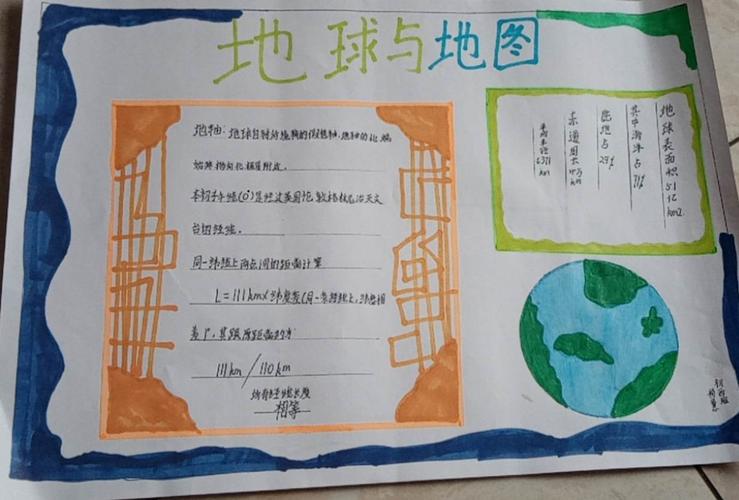 地球与地图
地轴:地球自转所绕轴的假想轴,地轴的北端
始终指向北极星附近。
本初子午线(0°)是经过英国伦敦格林尼治天文
台的经线。
同一纬线上两点间的距离计算
L=111km×纬度差(同一条经线上,纬度相
差1°,其
111km/110km
所有经线长度
相等
地球表面积5.1亿km2
其中海洋占71%
陆地占29%
赤道周长4万km
平均半径6371km